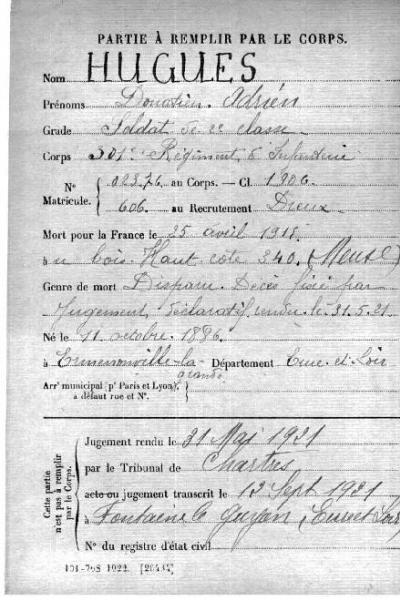 PARTIE À REMPLIR PAR LE CORPS.
Nom HUGUES
Prénoms Donatien Adrien
Grade Soldat de 2e classe
Corps 301e Régiment d'Infanterie
N° Matricule. { 02376 au Corps. — Cl. 1906.
606. au Recrutement Dreux
Mort pour la France le 25 avril 1915
au bois Haut côte 340 (Meuse)
Genre de mort Disparu. Décès fixé par
Jugement déclaratif rendu le 31.5.21
Né le 11 octobre 1886
à Ermenonville-la-grande Département Eure et Loir
Arr' municipal (p' Paris et Lyon), à défaut rue et N°. }
Cette partie n'est pas à remplir par le Corps.
Jugement rendu le 31 Mai 1921
par le Tribunal de Chartres
acte ou jugement transcrit le 12 Sept 1921
à Fontaine la Guyon (Eure et Loir)
N° du registre d'état civil
101-708 1922. [26434]